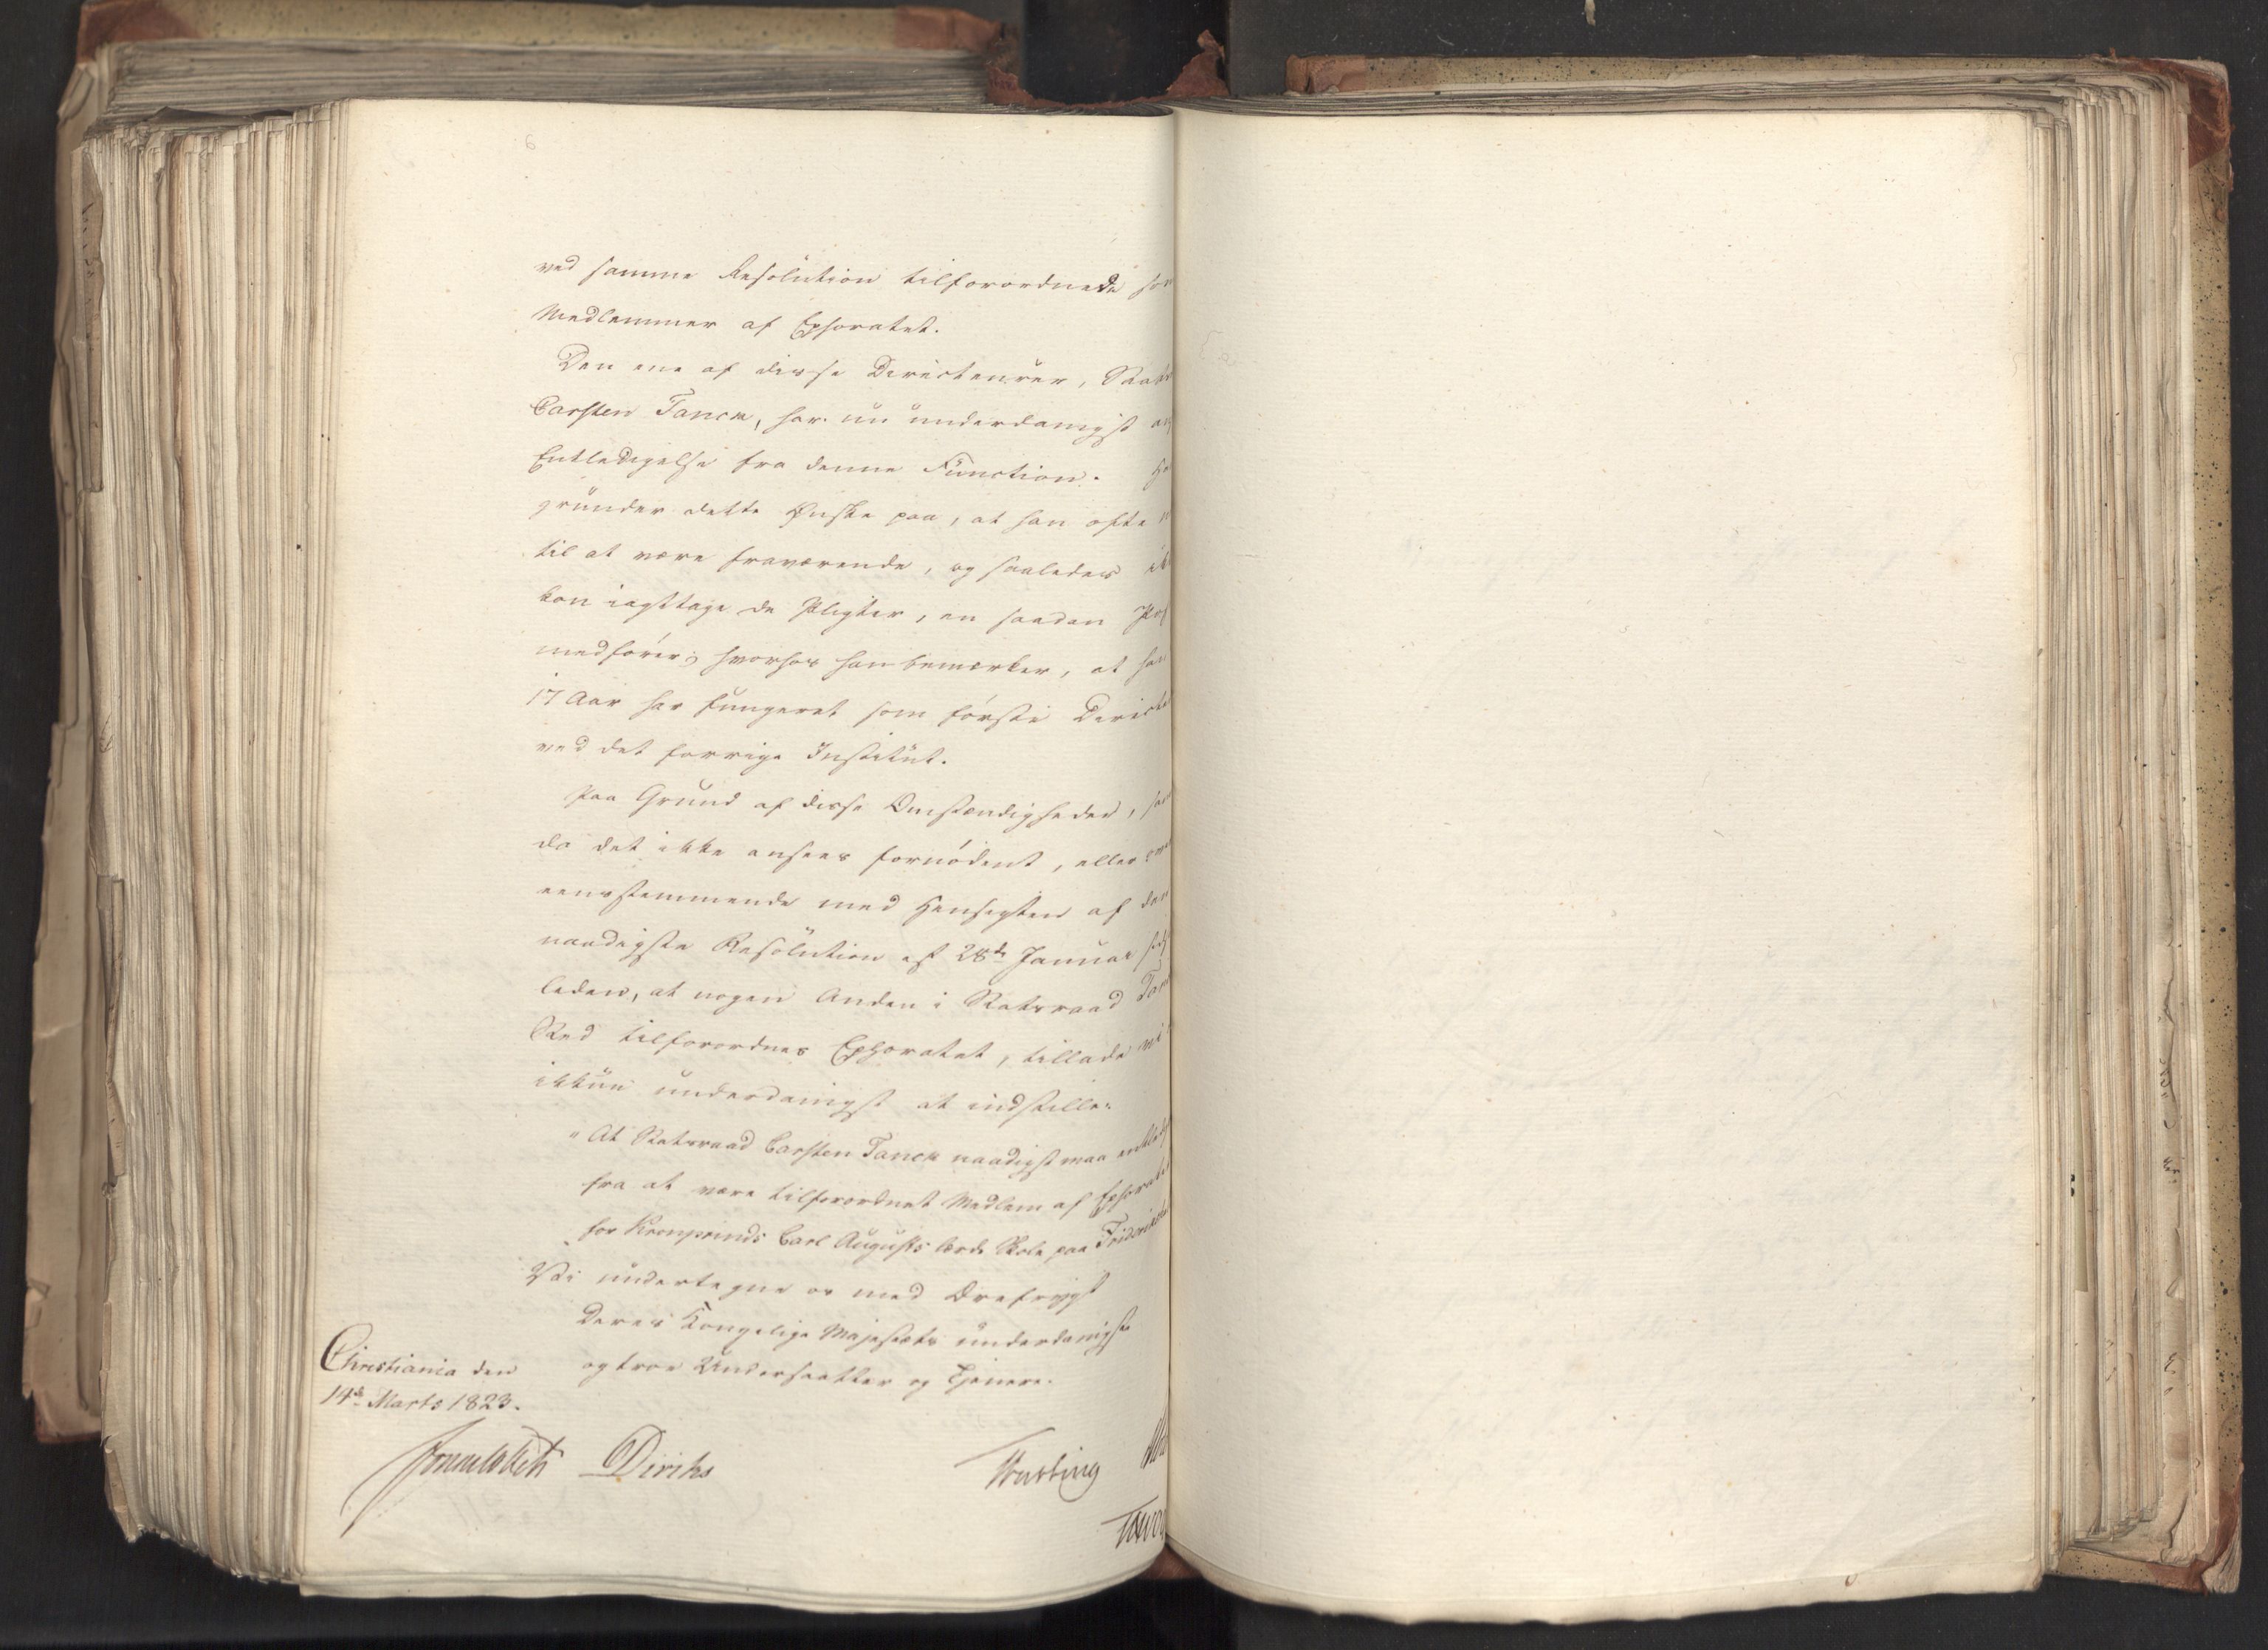 6
ved samme Resolution tilforordnede som
Medlemmer af Ephoratet.
Den ene af disse Directeurer, Stats
Carsten Tanck, har nu underdanigst
Entledigelse fra denne Function.
grunder dette Ønske paa, at han ofte
til at være fraværende, og saaledes ik
kan iagttage de Pligter, en saadan Post
medfører; hvorhos han bemærker, at han
17 Aar har fungeret som første Direct
ved det forrige Institut.
Paa Grund af disse Omstændigheder, samt
da det ikke ansees fornødent, eller
eensstemmende med Hensigten af den
naadigste Resolution af 28de Januar sidst
leden, at nogen Anden i Statsraad Tanck
Sted tilforordnes Ephoratet, tillade vi
ikkun underdanigst at indstille:
"At Statsraad Carsten Tanck naadigst maa entledig
fra at være tilforordnet Medlem af Ephoratet
for Kronprinds Carl Augusts lærde Skole paa Fridericks
Vi undertegne os med Ærefrygt
Deres Kongelige Majestæts underdanigste
og troe Undersaatter og Tjenere.
Christiania den
14de Marts 1823.
Sommerhielm Diriks